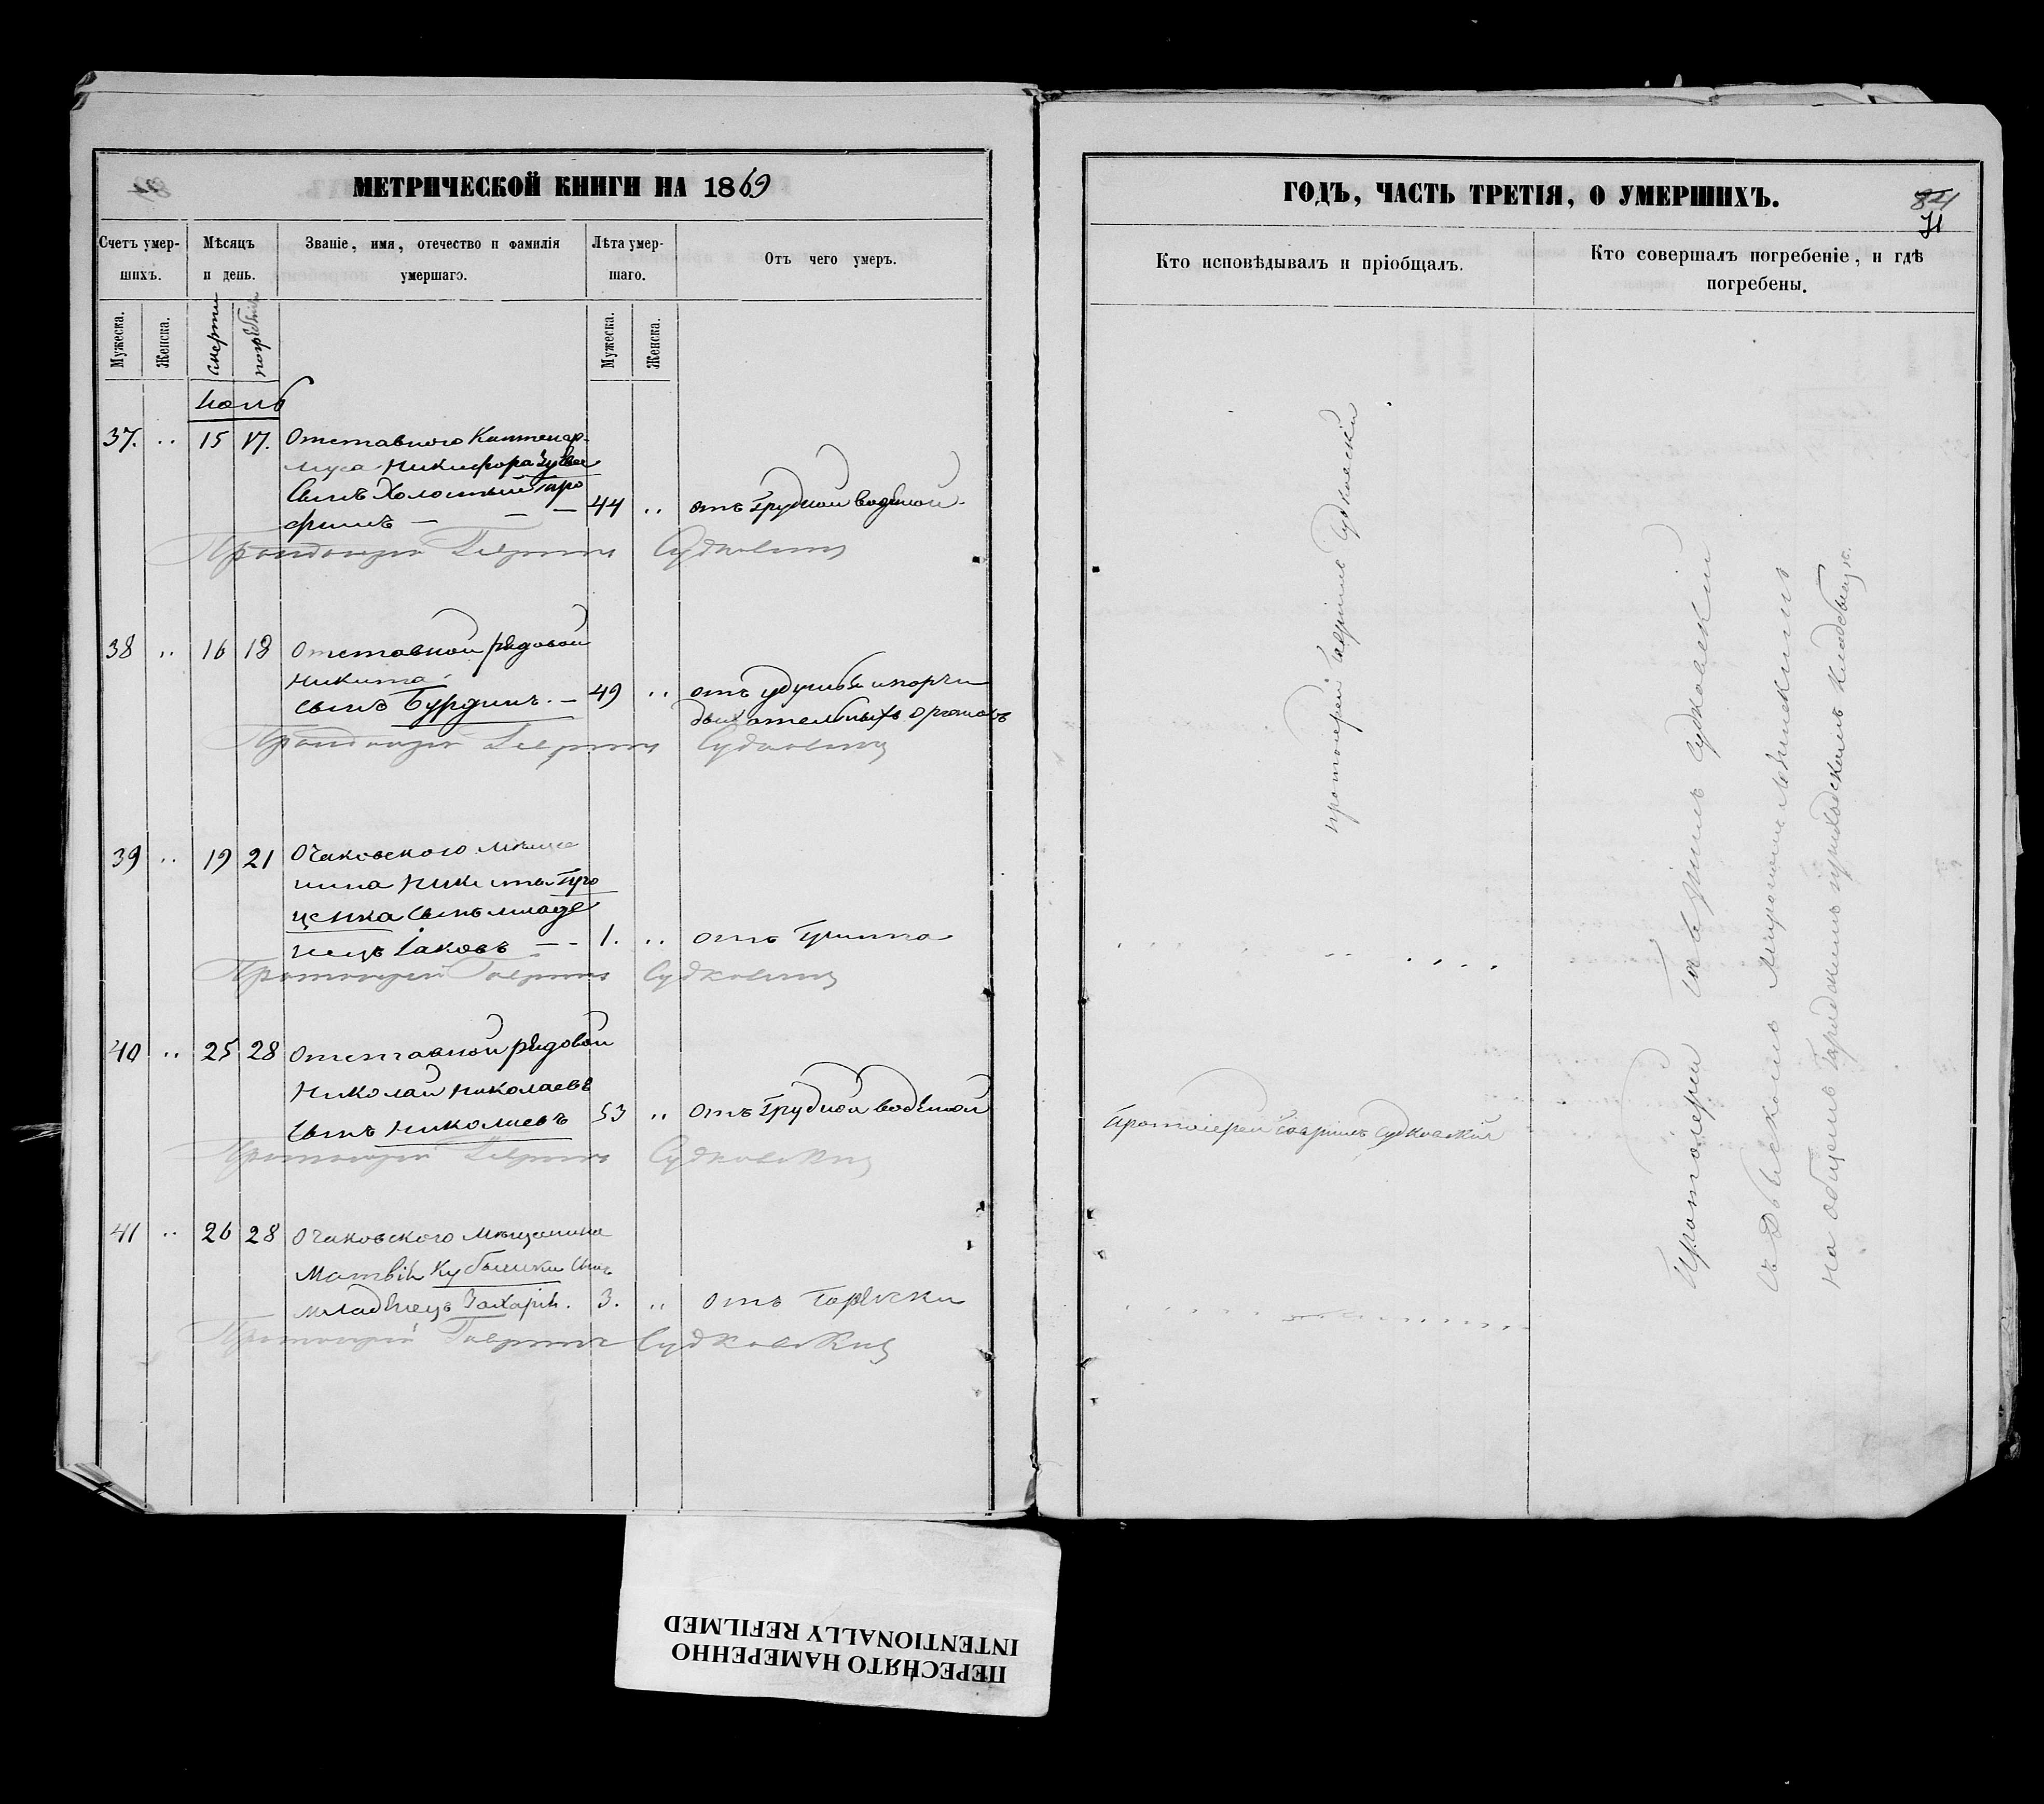 МЕТРИЧЕСКОЙ КНИГИ НА 1869
Счетъ умершихъ.
Мѣсяцъ и день.
Званіе, имя, отечество и фамилія умершаго.
Лѣта умершаго.
Отъ чего умеръ.
Мужеска.
Женска.
смерти
погребенія
Мужеска.
Женска.
37. „ 15 17. Отставного Каптенар-
муса Никифора
Сынъ Холостый Тро
фимъ — — — 44 „ отъ грудной водяной
Протоіерей Гавріилъ Судковскій
38 „ 16 18 Отставной рядовой
Никита
сынъ Бурдинъ. — 49 „ отъ удушья и порчи
дыхательныхъ органовъ
Протоіерей Гавріилъ Судковскій
39 „ 19 21 Очаковского мѣща
нина Никиты Про
ценка сынъ младе
нецъ Іаковъ — - 1. „ отъ
Протоіерей Гавріилъ Судковскій
40 „ 25 28 Отставной рядовой
Николай Николаевъ
сынъ Николаевъ 53 „ Отъ грудной водяной
Протоіерей Гавріилъ Судковскій
41 „ 26 28 Очаковского мѣщанина
Матвія сынъ
младенецъ Захарія. 3. „ Отъ горячки
Протоіерей Гавріилъ Судковскій
ГОДЪ, ЧАСТЬ ТРЕТІЯ, О УМЕРШИХЪ.
84
71
Кто исповѣдывалъ и пріобщалъ.
Кто совершалъ погребеніе, и гдѣ погребены.
протоіерей Гавріилъ Судковскій
Протоіерей Гавріилъ Судковскій
Протоіерей Гавріилъ Судковскій
съ Дьякономъ Мирономъ
на общемъ приходскомъ кладбищѣ.
ПЕРЕСНЯТО НАМЕРЕННО
INTENTIONALLY REFILMED